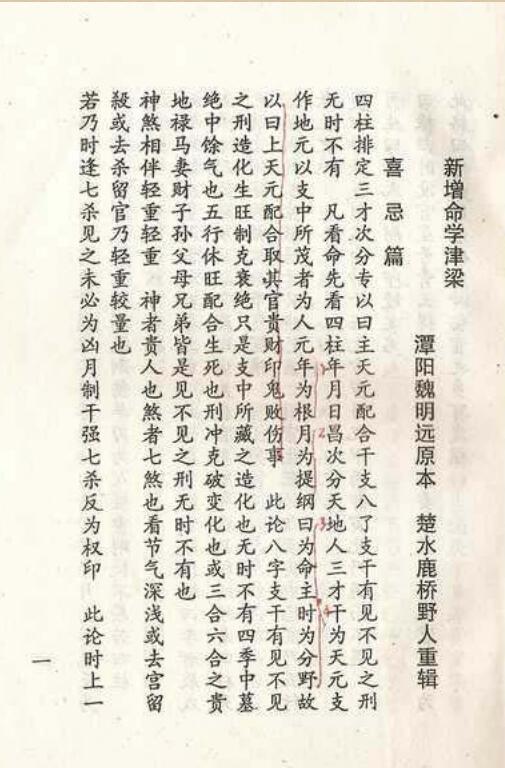 新增命学津梁
潭阳魏明远原本 楚水鹿桥野人重辑
喜忌篇
四柱排定三才次分专以曰主天元配合干支八了支干有见不见之刑
无时不有 凡看命先看四柱年月日昌次分天地人三才干为天元支
作地元以支中所茂者为人元年为根月为提纲曰为命主时为分野故
以曰上天元配合取其官贵财印鬼败伤事 此论八字支干有见不见
之刑造化生旺制克衰绝只是支中所藏之造化也无时不有四季中墓
绝中馀气也五行休旺配合生死也刑冲克破变化也或三合六合之贵
地禄马妻财子孙父母兄弟皆是见不见之刑无时不有也
神煞相伴轻重轻重 神者贵人也煞者七煞也看节气深浅或去官留
殺或去杀留官乃轻重较量也
若乃时逢七杀见之未必为凶月制干强七杀反为权印 此论时上一
一